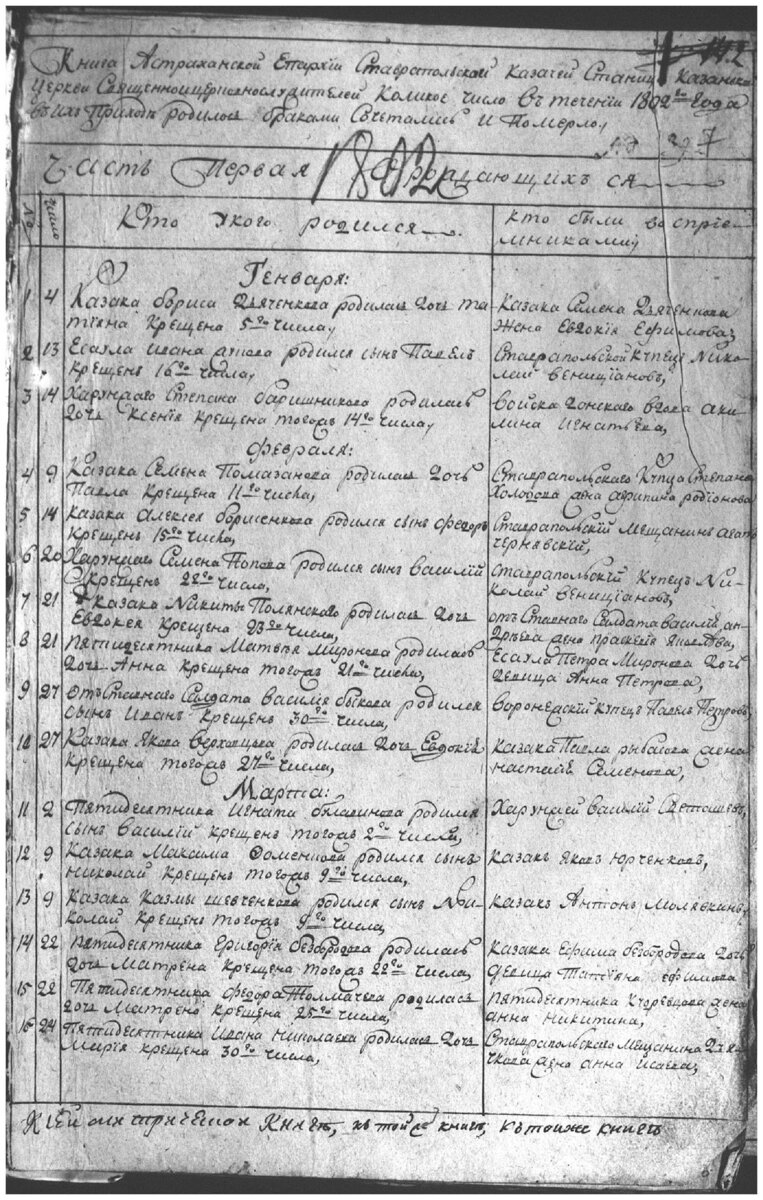 Книга Астраханской Епархіи Ставропольской казачей Станицы казанской
Церкви Священноицерковнослужителей Коликое число въ теченіи 1802го года
въ ихъ Приходе родилось браками Сочетались и Померло,
Часть Первая
1802
№
число
Кто у кого родился
кто были восприе-
мниками,
Генваря:
1 4 Казака бориса Дьяченкова родилась дочь та-
тіяна крещена 5го числа,
Казака Семена Дьяченкова
жена Евдокія Ефимова,
2 13 Есаула ивана родился сынъ Павелъ
крещенъ 16го числа,
Ставропольской купецъ Нико-
лай вениціановъ,
3 14 Харунжаго Степана баришникова родилась
дочь Ксенія крещена тогожъ 14го числа,
войска донскаго вдова аку-
лина игнатьева,
Февраля:
4 9 Казака Семена Помазанова родилась дочь
Павла крещена 11го числа,
Ставропольскаго купца Степана
Холодова жена агрипина родіонова
5 14 казака Алексея борисенкова родился сынъ федоръ
крещенъ 15го числа,
Ставропольскій мещанинъ
чернявскій,
6 20 Харунжаго Семена Попова родился сынъ василій
крещенъ 22го числа,
ставропольскій купецъ Ни-
колай веницiановъ,
7 21 Казака Никиты Полянскаго родилась дочь
Евдокея крещена 23го числа,
отъставнаго Салдата василія ан-
дрѣева жена праскевія
8 21 пятидесятника Матвѣя миронова родилась
дочь Анна крещена тогожъ 21го числа,
Есаула Петра Миронова дочь
девица Анна Петрова,
9 27 отъставнаго Салдата василія быкова родился
сынъ иванъ крещенъ 30го числа,
воронежскій купецъ Павелъ Петровъ,
10 27 Казака якова верховцова родилась дочь Евдокія
крещена тогожъ 27го числа,
казака Павла рыбалова жена
настасія Семенова,
Марта:
11 2 Пятидесятника игната родился
сынъ василій крещенъ тогожъ 2го числа,
Харунжей василій
12 9 Казака Максима Фоменкова родился сынъ
николай крещенъ тогожъ 9го числа,
казакъ яковъ юрченковъ,
13 9 Казака Казмы шевченкова родился сынъ Ни-
колай крещенъ тогожъ 9го числа,
казакъ Антонъ
14 22 пятидесятника григорія безбородова родилась
дочь Матрена крещена тогожъ 22го числа,
казака ефима безбородова дочь
девица Татіяна ефимова
15 22 Пятидесятника федора Толмачева родилась
дочь Матрена крещена 25го числа,
пятидесятника жена
анна никитина,
16 24 Пятидесятника ивана николаева родилась дочь
Марія крещена 30го числа,
Ставропольскаго Мещанина Дья-
чкова жена анна исаева,
книге, къ той же книге, къ тоиже книге